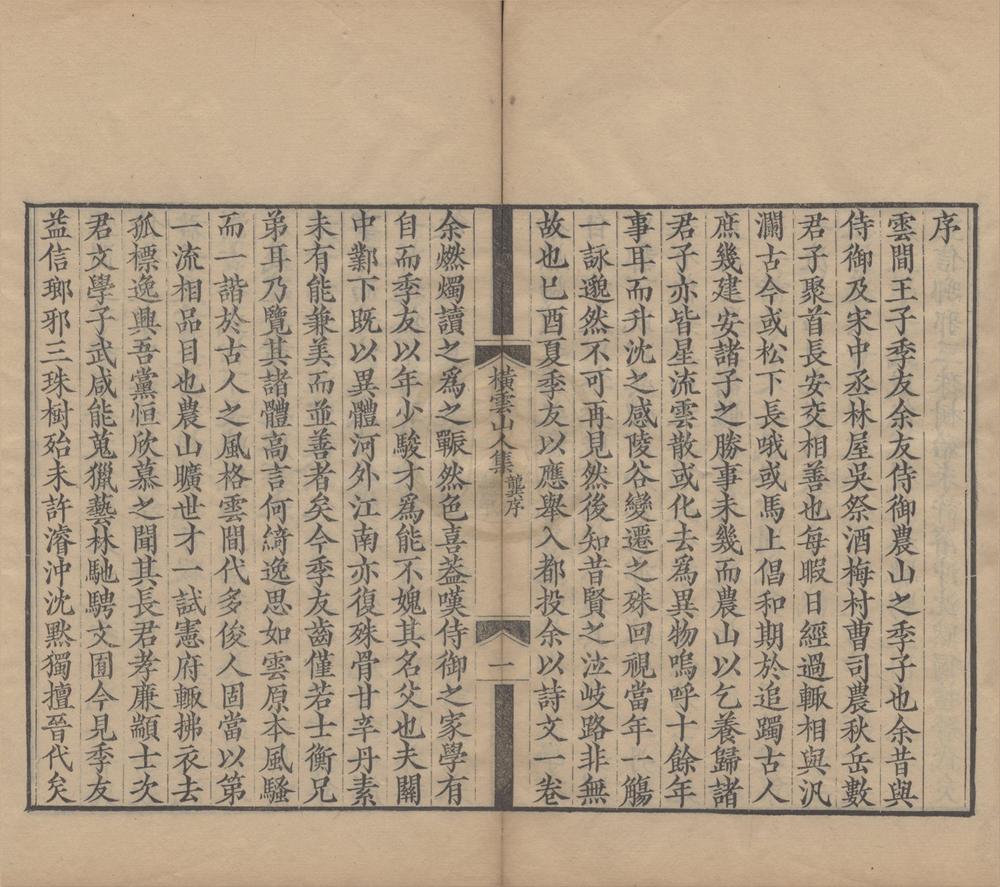 序
雲間王子季友余友侍御農山之季子也余昔與
侍御及宋中丞林屋吳祭酒梅村曹司農秋岳數
君子聚首長安交相善也每暇日經過輙相與汎
瀾古今或松下長哦或馬上倡和期於追躅古人
庶幾建安諸子之勝事未幾而農山以乞養歸諸
君子亦皆星流雲散或化去爲異物嗚呼十餘年
事耳而升沈之感陵谷變遷之殊回視當年一觴
一詠邈然不可再見然後知昔賢之泣岐路非無
故也已酉夏季友以應舉入都投余以詩文一卷
橫雲山人集 龔序 一
余燃燭讀之爲之囅然色喜葢嘆侍御之家學有
自而季友以年少駿才爲能不媿其名父也夫關
中鄴下既以異體河外江南亦復殊骨甘辛丹素
未有能兼美而並善者矣今季友齒僅若士衡兄
弟耳乃覽其諸體高言何綺逸思如雲原本風騷
而一諧於古人之風格雲間代多俊人固當以第
一流相品目也農山曠世才一試憲府輙拂衣去
孤標逸興吾黨恒欣慕之聞其長君孝廉顓士次
君文學子武咸能蒐獵藝林馳騁文囿今見季友
益信瑯邪三珠樹殆未許濬沖沈黙獨擅晉代矣